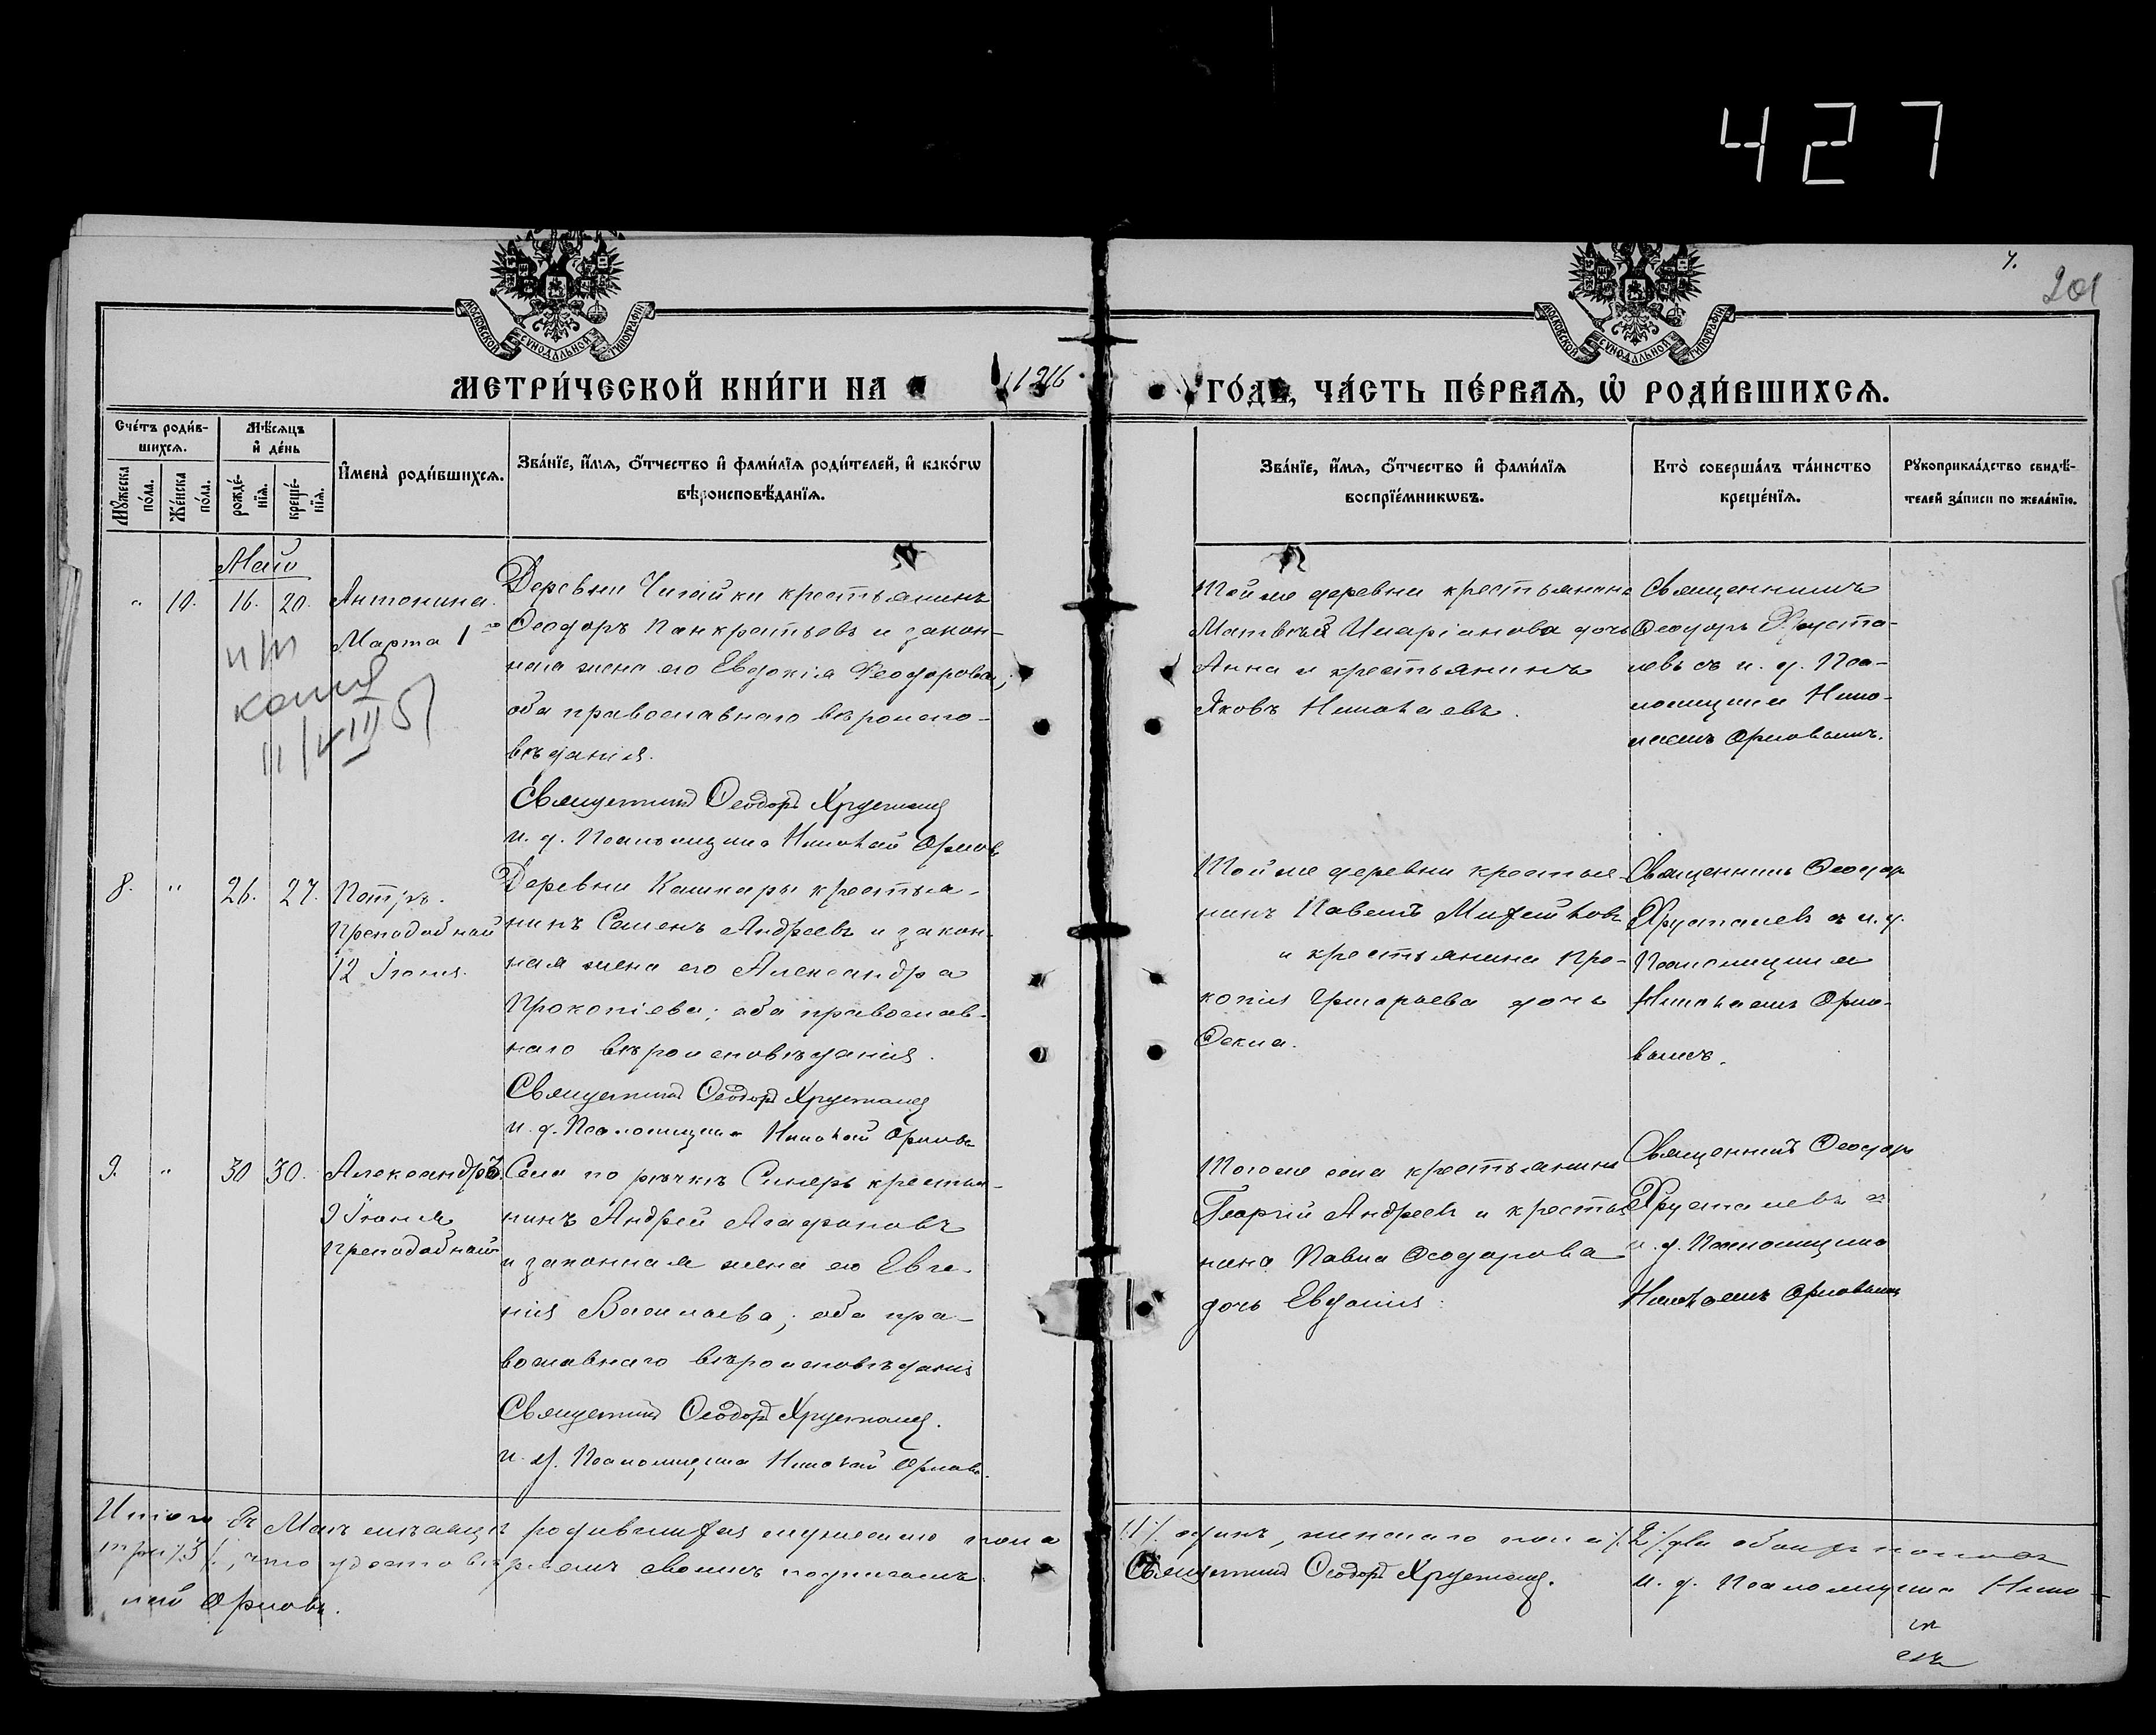 427
7.
201
МОСКОВСКОЙ СѴНОДАЛЬНОЙ ТИПОГРАФІИ
МОСКОВСКОЙ СѴНОДАЛЬНОЙ ТИПОГРАФІИ
МЕТРИ́ЧЕСКОЙ КНИ́ГИ НА
ГО́ДЪ, ЧА́СТЬ ПЕ́РВАЯ, Ѡ РОДИ́ВШИХСЯ.
Сче́тъ роди́в-
шихся.
Мѣ́сяцъ
и҆ де́нь
Мꙋ́жеска по́ла.
Же́нска по́ла.
рожде́-
нїя.
креще́-
нїя.
И҆мена̀ роди́вшихся.
Зва́нїе, и҆́мя, ѻ҆́тчество и҆ фами́лїя роди́телей, и҆ како́гѡ
вѣроисповѣ́данїя.
Зва́нїе, и҆́мя, ѻ҆́тчество и҆ фами́лїя
воспрїе́мникѡвъ.
Кто̀ соверша́лъ та́инство
креще́нїя.
Рꙋкоприкла́дство свидѣ́-
телей за́писи по жела́нїю.
Май
" 10. 16. 20.
Антонина.
Марта 1
Деревни Читайки крестьянинъ
Ѳеодоръ Панкратьевъ и закон-
ная жена его Евдокія Ѳеодорова;
оба православнаго вѣроиспо-
вѣданія.
Священникъ Ѳеодоръ Хрусталев
и. д. Псаломщика Николай Орловъ
Той же деревни крестьянина
Матвѣя Иларіонова дочь
Анна и крестьянинъ
Яковъ Николаевъ.
Священникъ
Ѳеодоръ Хруста-
левъ съ и. д. Пса-
ломщика Нико-
лаемъ Орловымъ.
копия
8. " 26. 27.
Петръ.
Преподобный
12 Іюня.
Деревни Кашкары крестья-
нинъ Семенъ Андреевъ и закон-
ная жена его Александра
Прокопіева; оба православ-
наго вѣроисповѣданія.
Священникъ Ѳеодоръ Хрусталев
и. д. Псаломщика Николай Орловъ
Той же деревни крестья-
нинъ Павелъ Михайловъ
и крестьянина Про-
копія Григорьева дочь
Ѳекла.
Священникъ Ѳеодоръ
Хрусталевъ съ и. д.
Псаломщика
Николаемъ Орло-
вымъ.
9. " 30 30.
Александръ.
9 Іюня
Преподобный
Села по рѣчкѣ Синеръ крестья-
нинъ Андрей Агафоновъ
и законная жена его Евге-
нія Васильева; оба пра-
вославнаго вѣроисповѣданія
Священникъ Ѳеодоръ Хрусталев.
и. д. Псаломщика Николай Орловъ.
Того же села крестьянинъ
Георгій Андреевъ и крестья-
нина Павла Ѳеодорова
дочь Евдокія.
Священникъ Ѳеодоръ
Хрусталевъ съ
и. д. Псаломщика
Николаемъ Орловымъ
Итого въ Маѣ мѣсяцѣ родившихся мужескаго пола
три /3/, что удостовѣряемъ своимъ подписомъ.
лай Орловъ.
/1/ одинъ, женскаго пола /2/ два обоихъ половъ
Священникъ Ѳеодоръ Хрусталев.
и. д. Псаломщика Нико-